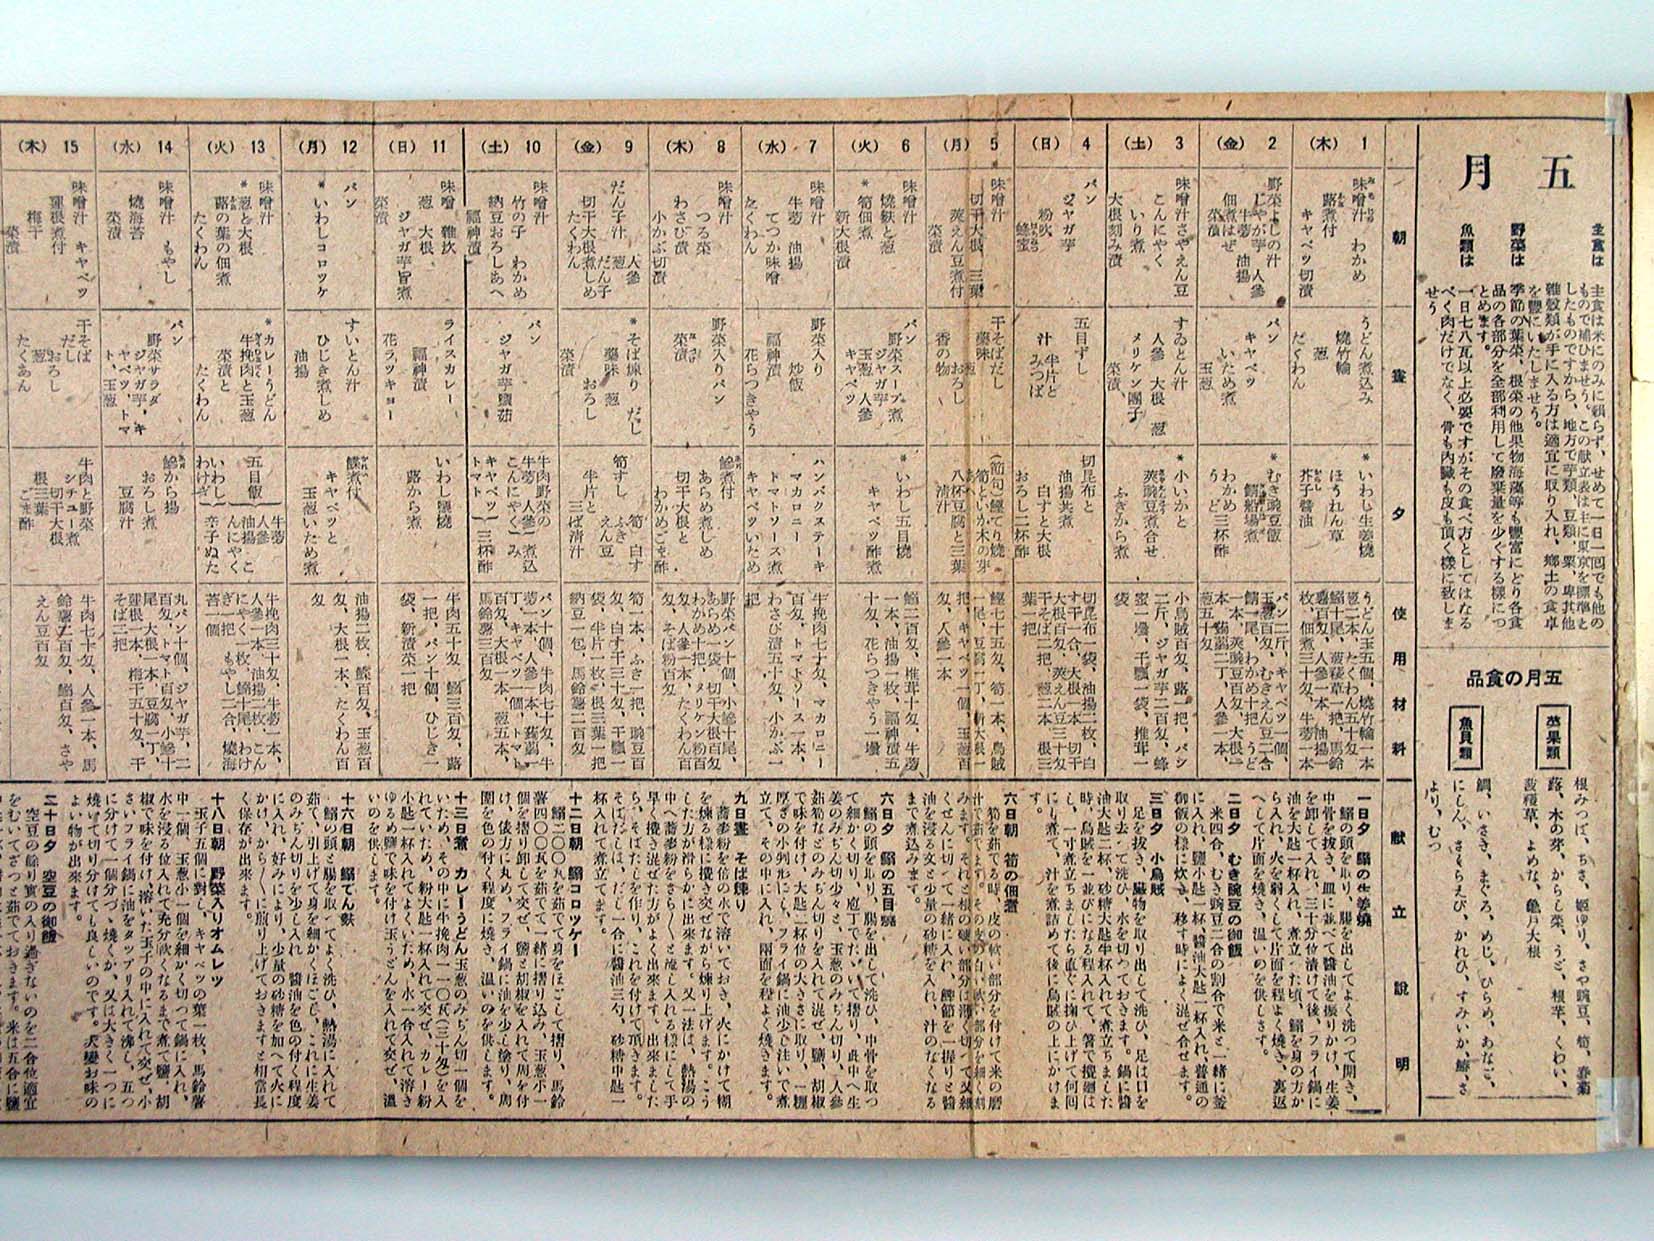 五月
主食は
主食は米にのみに頼らず、せめて一日一回でも他の
もので補ひませう。この献立表は主に東京を標準と
したものですから、地方で芋類、豆類、粟、卑其他
雑穀類が手に入る方は適宜に取り入れ、郷土の食卓
を豊にいたしませう。
野菜は
季節の葉菜、根菜の他果物海藻等も豊富にとり各食
品の各部分を全部利用して廃棄量を少くする様につ
とめます。
魚類は
一日七八瓦以上必要ですがその食べ方としてはなる
べく肉だけでなく、骨も内臓も皮も頂く様に致しま
せう
五月の食品
菜果類
根みつば、ちさ、姫ゆり、さや豌豆、筍、春菊
蕗、木の芽、からし菜、うど、根芋、くわい、
菠薐草、よめな、亀戸大根
魚貝類
鯛、いさき、まぐろ、めじ、ひらめ、あなご、
にしん、さくらえび、かれひ、すみいか、鰆、さ
より、むつ
朝
昼
夕
使用材料
献立説明
1
(木)
味噌汁 わかめ
蕗煮付
キャベツ切漬
うどん煮込み
焼竹輪
葱
たくわん
*いわし生姜焼
ほうれん草
芥子醤油
うどん玉五個、焼竹輪一本
葱二本、たくわん五十匁
鰯十尾、菠薐草一把、馬鈴
薯百匁、人参一本、油揚一
枚、佃煮三十匁、牛蒡一本
2
(金)
野菜よしの汁
じゃが芋 人参
牛蒡 油揚
佃煮はぜ
菜漬
パン
キャベツ
いため煮
玉葱
*むき豌豆飯
鯖船場煮
わかめ
うど 三杯酢
パン二斤、キャベツ一個、
玉葱百匁、むきえん豆二合
鯖一尾、わかめ十把、うど
一本、莢豌豆百匁、大根一
本、蒟蒻二丁、人参一本、
葱五十匁
3
(土)
味噌汁さやえん豆
こんにゃく
いり煮
大根刻み漬
すゐとん汁
人参 大根 葱
メリケン団子
菜漬
*小いかと
莢豌豆煮合せ
ふきから煮
小烏賊百匁、蕗一把、パン
二斤、ジャガ芋二百匁、蜂
蜜一壜、干瓢一袋、椎茸一
4
(日)
パン
ジャガ芋
粉吹
蜂蜜
五目ずし
汁 半片と
みつば
切昆布と
油揚其煮
白すと大根
おろし二杯酢
切昆布一袋、油揚二枚、白
す干一合、大根一本、切干
大根一把、莢えん豆三十匁
干そば二把、葱二本、三
葉一把
5
(月)
味噌汁
切干大根、三葉
莢えん豆煮付
菜漬
干そばだし
薬味 おろし
香の物
(節句)鰹てり焼
筍といか木の芽
あへ
八杯豆腐と三葉
清汁
鰹七十五匁、筍一本、烏賊
一尾、豆腐一丁、新大根一
把、キャベツ一個、玉葱百
匁、人参一本
6
(火)
味噌汁
焼麩と葱
*筍佃煮
新大根漬
パン
野菜スープ煮
ジャガ芋
玉葱 人参
キャベツ
*いわし五目焼
キャベツ酢煮
鰯二百匁、椎茸十匁、牛蒡
一本、油揚一枚、福神漬五
十匁、花らつきやう一壜
7
(水)
味噌汁
牛蒡 油揚
てつか味噌
たくわん
野菜入り
炒飯
福神漬
花らつきやう
ハンバクステーキ
マカロニー
トマトソース煮
キャベツいため
牛挽肉七十匁、マカロニー
百匁、トマトソース一本、
わさび漬五十匁、小かぶ一
把
8
(木)
味噌汁
つる菜
わさび漬
小かぶ切漬
野菜入りパン
菜漬
鯵煮付
あらめ煮しめ
切干大根と
わかめごま酢
野菜パン十個、小鯵十尾、
あらめ一袋、切干大根百匁
わかめ十把、メリケン粉百
匁、人参一本、たくわん百
匁、そば粉百匁
9
(金)
だん子汁
人参
葱 だん子
切干大根煮しめ
たくわん
*そば煉り
だし
薬味 葱
おろし
菜漬
筍すし
筍 白す
ふき
えん豆
半片と
三ば清汁
筍一本、ふき一把、豌豆百
匁、白す干三十匁、干瓢一
袋、半片一枚、根三葉一把
納豆一包、馬鈴薯二百匁
10
(土)
味噌汁
竹の子 わかめ
納豆おろしあへ
福神漬
パン
ジャガ芋塩茹
牛肉野菜の
牛蒡 煮込
こんにやく み
キャベツ
トマト 三杯酢
パン十個、牛肉七十匁、牛
蒡一本、人参一本、蒟蒻一
丁、キャベツ一個、トマト
百匁、大根一本、葱五本、
馬鈴薯三百匁
11
(日)
味噌 雑炊
葱 大根
ジャガ芋旨煮
菜漬
ライスカレー
福神漬
花ラツキヨー
いわし塩焼
蕗から煮
牛肉五十匁、鰯三百匁、蕗
一把、パン十個、ひじき一
袋、新漬菜一把
12
(月)
パン
*いわしコロツケ
すいとん汁
ひじき煮しめ
油揚
鰈煮付
キャベツと
玉葱いため煮
油揚二枚、鰈百匁、玉葱百
匁、大根一本、たくわん百
匁
13
(火)
味噌汁
*葱と大根
蕗の葉の佃煮
たくわん
*カレーうどん
牛挽肉と玉葱
菜漬と
たくわん
五目飯
牛蒡
人参
油揚 こ
んにやく
いわし
わけぎ 辛子ぬた
牛挽肉三十匁、牛蒡一本、
人参一本、油揚二枚、こん
にやく一枚、鰯十尾、わけ
ぎ一把、もやし二合、焼海
苔一個
14
(水)
味噌汁 もやし
焼海苔
菜漬
パン
野菜サラダ
ジャガ芋、キ
ャベツ、トマ
ト、玉葱
鯵から揚
おろし煮
豆腐汁
丸パン十個、ジャガ芋、二
百匁、トマト百匁、小鯵十
尾、大根一本、豆腐一丁、
里根一本、梅干五十匁、干
そば三把
15
(木)
味噌汁 キャベツ
里根煮付
梅干
菜漬
干そば
だし
おろし
葱
たくあん
牛肉と野菜
シチユー煮
切干大根
根三葉
ごま酢
牛肉七十匁、人参一本、馬
鈴薯二百匁、鰯百匁、さや
えん豆百匁
一日夕 鰯の生姜焼
鰯の頭を取り、腸を出してよく洗つて開き、
中骨を抜き、皿に並べて醤油を振りかけ、生姜
を卸して入れ、三十分位漬けて後、フライ鍋に
油を大匙一杯入れ、煮立つた頃、鰯を身の方か
ら入れ、火を弱くして片面を程よく焼き、裏返
へして片面を焼き、温いのを供します。
二日夕 むき豌豆の御飯
米四合、むき豌豆二合の割合で米と一緒に釜
に入れ、塩小匙一杯、醤油大匙一杯入れ、普通の
御飯の様に炊き、移す時によく混ぜ合せます。
三日夕 小烏賊
足を抜き、臓物を取り出して洗ひ、足は口を
取り去つて洗ひ、水を切つておきます。鍋に醤
油大匙二杯、砂糖大匙半杯入れて煮立ちました
時、烏賊を一並びになる程入れて、箸で攪廻は
し、一寸煮立ちましたら直ぐに掬ひ上げて何回
にも煮て、汁を煮詰めて後に烏賊の上にかけま
す。
六日朝 筍の佃煮
筍を茹でる時、皮の軟い部分を付けて米の磨
汁で茹でます。その皮の白い軟い部分を細く刻
みます。それと根の硬い部分は薄く切つて又細
くせんに切つて一緒に入れ、鰹節を一握りと醤
油を浸る丈と少量の砂糖を入れ、汁のなくなる
まで煮込みます。
六日夕 鰯の五目焼
鰯の頭を取り、腸を出して洗ひ、中骨を取つ
て細かく切り、庖丁でたたいて摺り、此中へ生
姜のみぢん切り少々と、玉葱のみぢん切り、人参
茹筍などのみぢん切りを入れて混ぜ、塩、胡椒
で味を付け、大匙二杯位の大きさに取り、一糎
厚さの小判形にし、フライ鍋に油少し注いで煮
立て、その中に入れ、両面を程よく焼きます。
九日昼 そば煉り
蕎麦粉を倍の水で溶いておき、火にかけて糊
を煉る様に攪き交ぜながら煉り上げます。こう
した方が滑らかに出来ます。又一法は、熱湯の
中へ蕎麦粉をさら〳〵と流し入れる様にして手
早く攪き混ぜた方がよく出来ます。出来ました
ら、そばだしを作り、これを付けて頂きます。
そばだしは、だし一合に醤油三勺、砂糖中匙一
杯入れて煮立てます。
十二日朝 鰯コロッケー
鰯二〇〇瓦を茹でて身をほごして摺り、馬鈴
薯四〇〇瓦を茹でて一緒に摺り込み、玉葱小一
個を摺り卸して交ぜ、塩と胡椒を入れて周を付
け、俵方に丸め、フライ鍋に油を少し塗り、周
囲を色の付く程度に焼き、温いのを供します。
十三日煮 カレーうどん玉葱のみぢん切一個を
いため、その中に牛挽肉一一〇瓦(三十匁)を入
れていため、粉大匙一杯入れて交ぜ、カレー粉
小匙一杯入れてよくいため、水一合入れて溶き
ゆるめ塩で味を付け玉うどんを入れて交ぜ、温
いのを供します。
十六日朝 鰯でん麩
鰯の頭と腸を取つてよく洗ひ、熱湯に入れて
茹で、引上げて身を細かくほごし、これに生姜
のみぢん切りを少し入れ 醤油を色の付く程度
に入れ、好みにより、少量の砂糖を加へて火に
かけ、から〳〵に煎り上げておきますと相当長
く保存が出来ます。
十八日朝 野菜入りオムレツ
玉子五個に対し、キャベツの葉一枚、馬鈴薯
中一個、玉葱小一個を細かく切つて鍋に入れ、
水を浸る位入れて充分軟くなるまで煮て塩、胡
椒で味を付け、溶いた玉子の中に入れて交ぜ、小
さいフライ鍋に油をタップリ入れて沸し、五つ
に分けて一個分づゝ焼くか、又は大きく一つに
焼いて切り分けても良しいのです。大変お味の
よい物が出来ます。
二十日夕 空豆の御飯
空豆の餘り実の入り過ぎないのを二合位適宜
をむいてざつと茹でておきます。米は五合に塩